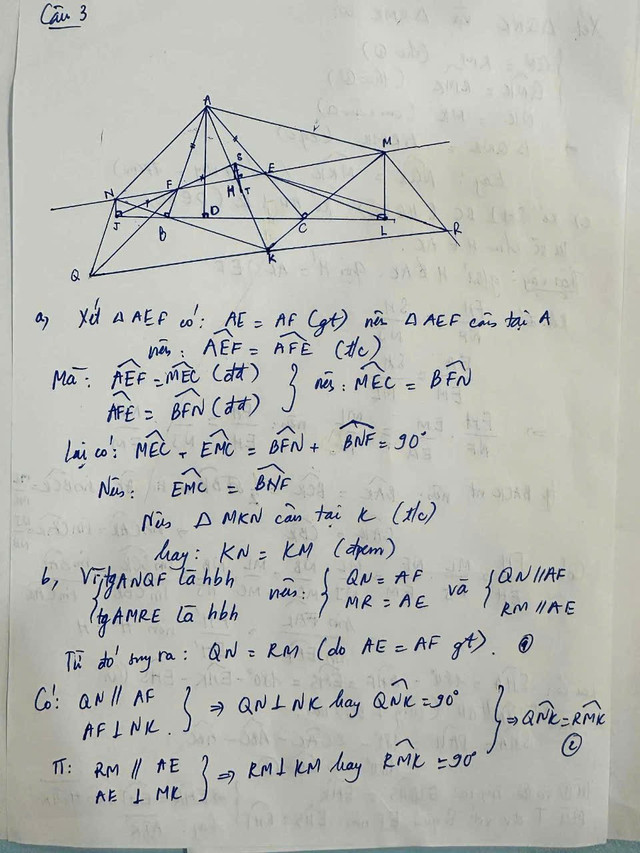 Câu 3
A
M
S
E
N
F
H
T
J
B
D
C
L
R
K
Q
a, Xét △ AEF có: AE = AF (gt) nên △ AEF cân tại A
nên: \widehat{AEF} = \widehat{AFE} (t/c)
Mà: \widehat{AEF} = \widehat{MEC} (đđ)
\widehat{AFE} = \widehat{BFN} (đđ) } nên: \widehat{MEC} = \widehat{BFN}
Lại có: \widehat{MEC} + \widehat{EMC} = \widehat{BFN} + \widehat{BNF} = 90°
Nên: \widehat{EMC} = \widehat{BNF}
Nên △ MKN cân tại K (t/c)
hay: KN = KM (đpcm)
b, Vì { tgANQF là hbh nên: { QN = AF và { QN // AF
tgAMRE là hbh MR = AE RM // AE
Từ đó suy ra: QN = RM (do AE = AF gt). ①
Có: QN // AF
AF ⊥ NK. } ⇒ QN ⊥ NK hay \widehat{QNK} = 90° } ⇒ \widehat{QNK} = \widehat{RMK} ②
TT: RM // AE
AE ⊥ MK } ⇒ RM ⊥ KM hay \widehat{RMK} = 90°